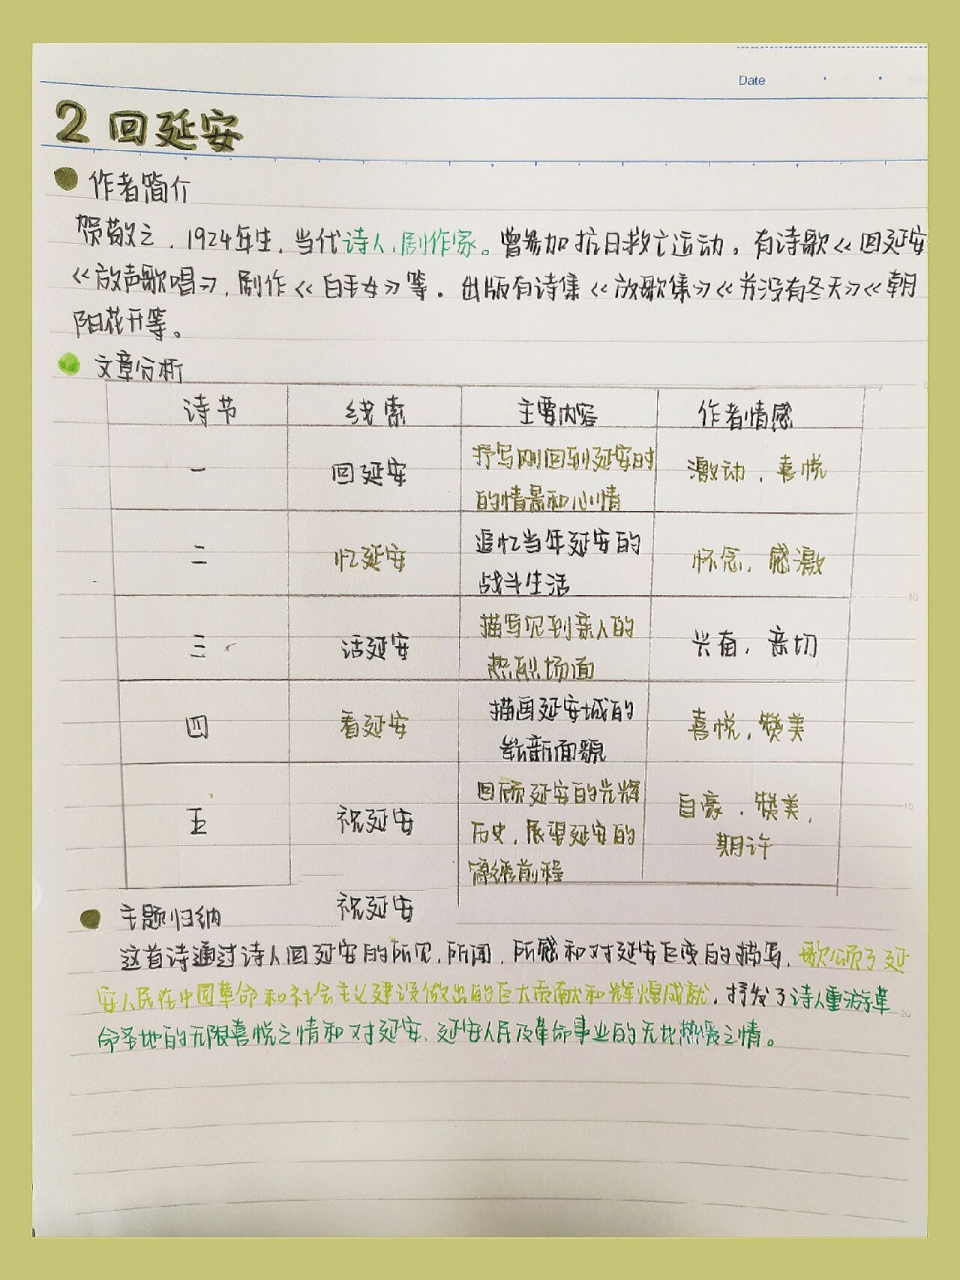 Date
2 回延安
作者简介
贺敬之，1924年生，当代诗人，剧作家。曾参加抗日救亡运动。有诗歌《回延安
《放声歌唱》，剧作《白毛女》等。出版有诗集《放歌集》《并没有冬天》《朝
阳花开等。
文章分析
诗节 线索 主要内容 作者情感
一 回延安 抒写刚回到延安时
的情景和心情 激动，喜悦
二 忆延安 追忆当年延安的
战斗生活 怀念，感激
三 话延安 描写见到亲人的
热烈场面 兴奋，亲切
四 看延安 描画延安城的
崭新面貌 喜悦，赞美
五 祝延安 回顾延安的光辉
历史，展望延安的
前程 自豪，赞美，
期许
祝延安
主题归纳
这首诗通过诗人回延安的所见，所闻，所感和对延安巨变的描写，歌颂了延
安人民在中国革命和社会主义建设做出的巨大贡献和辉煌成就，抒发了诗人重游革
命圣地的无限喜悦之情和对延安、延安人民及革命事业的无比热爱之情。
10
15
20